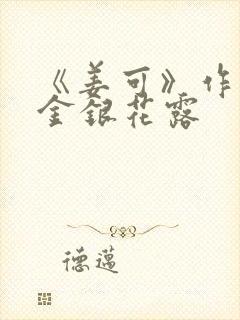 《姜可》作
金銀花露
德邁